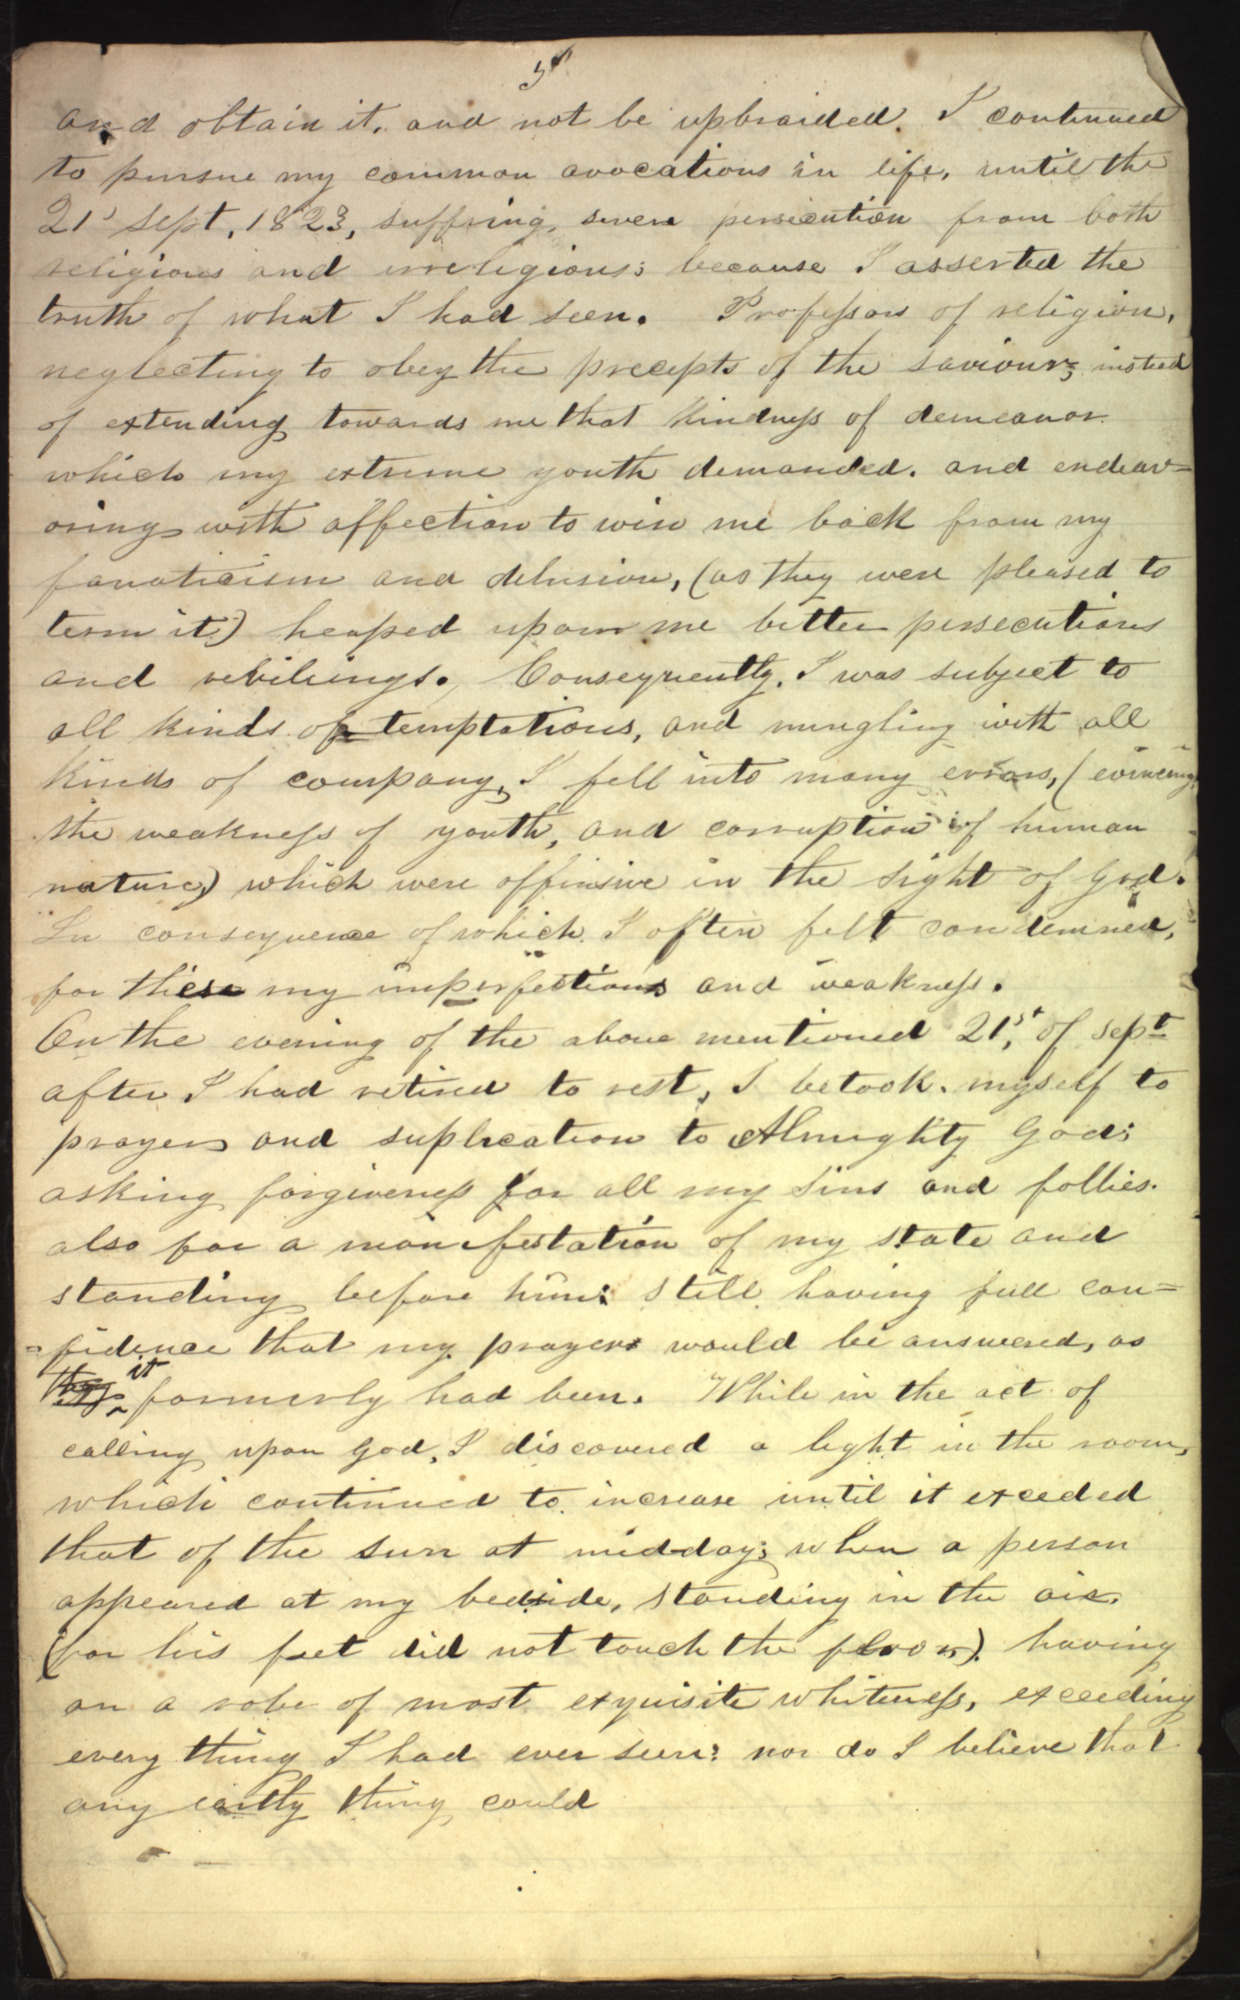 5
and obtain it, and not be upbraided. I continued
to pursue my common avocations in life, until the
21st Sept, 1823, suffring, severe persecution from both
religious and irreligious; because I asserted the
truth of what I had seen. Professors of religion,
neglecting to obey the precepts of the saviour; instead
of extending towards me that kindness of demeanor
which my extreme youth demanded, and endeav=
oring with affection to win me back from my
fanaticism and delusion, (as they were pleased to
term it,) heaped upon me bitter persecutions
and revilings. Consequently, I was subject to
all kinds of temptations, and mingling with all
kinds of company, I fell into many errors, (evincing
the weakness of youth, and corruption of human
nature,) which were offinsive in the sight of God.
In consequence of which, I often felt condemned,
for these my imperfections and weakness.
On the evening of the above mentioned 21st, of sept
after I had retired to rest, I betook myself to
prayer, and suplication to Almighty God;
asking forgiveness for all my sins and follies.
also for a manifestation of my state and
standing before him: Still having full con=
=fidence that my prayers would be answered, as
it formerly had been. While in the act of
calling upon God, I discovered a light in the room,
which continued to increase until it exceeded
that of the sun at mid-day; when a person
appeared at my bedside, standing in the air,
(for his feet did not touch the floor,) having
on a robe of most exquisite whiteness, exceeding
every thing I had ever seen: nor do I believe that
any earthy thing could